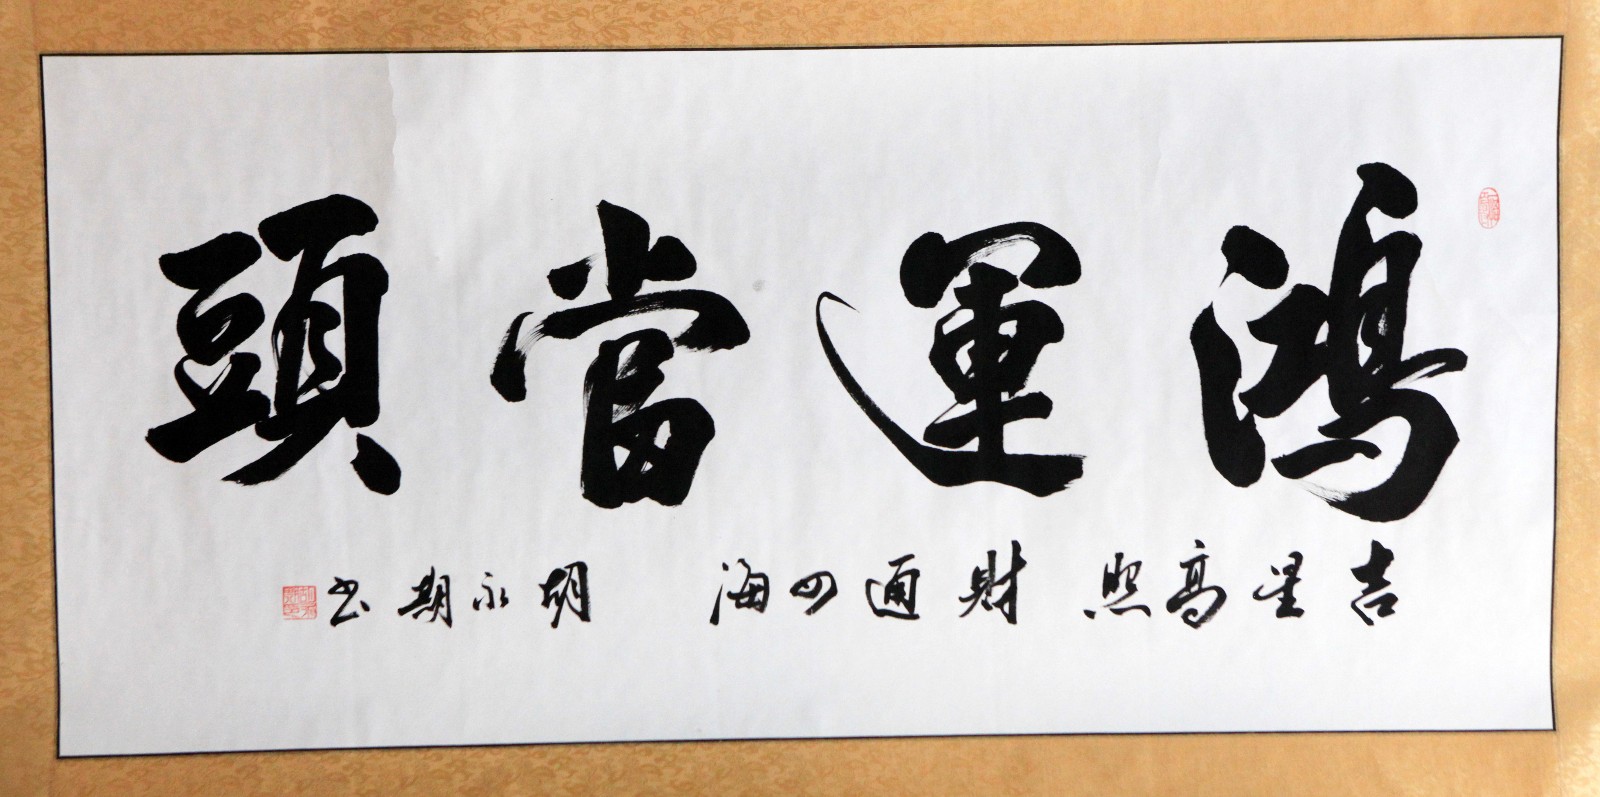 鴻運當頭
吉星高照 財通四海 胡永期书